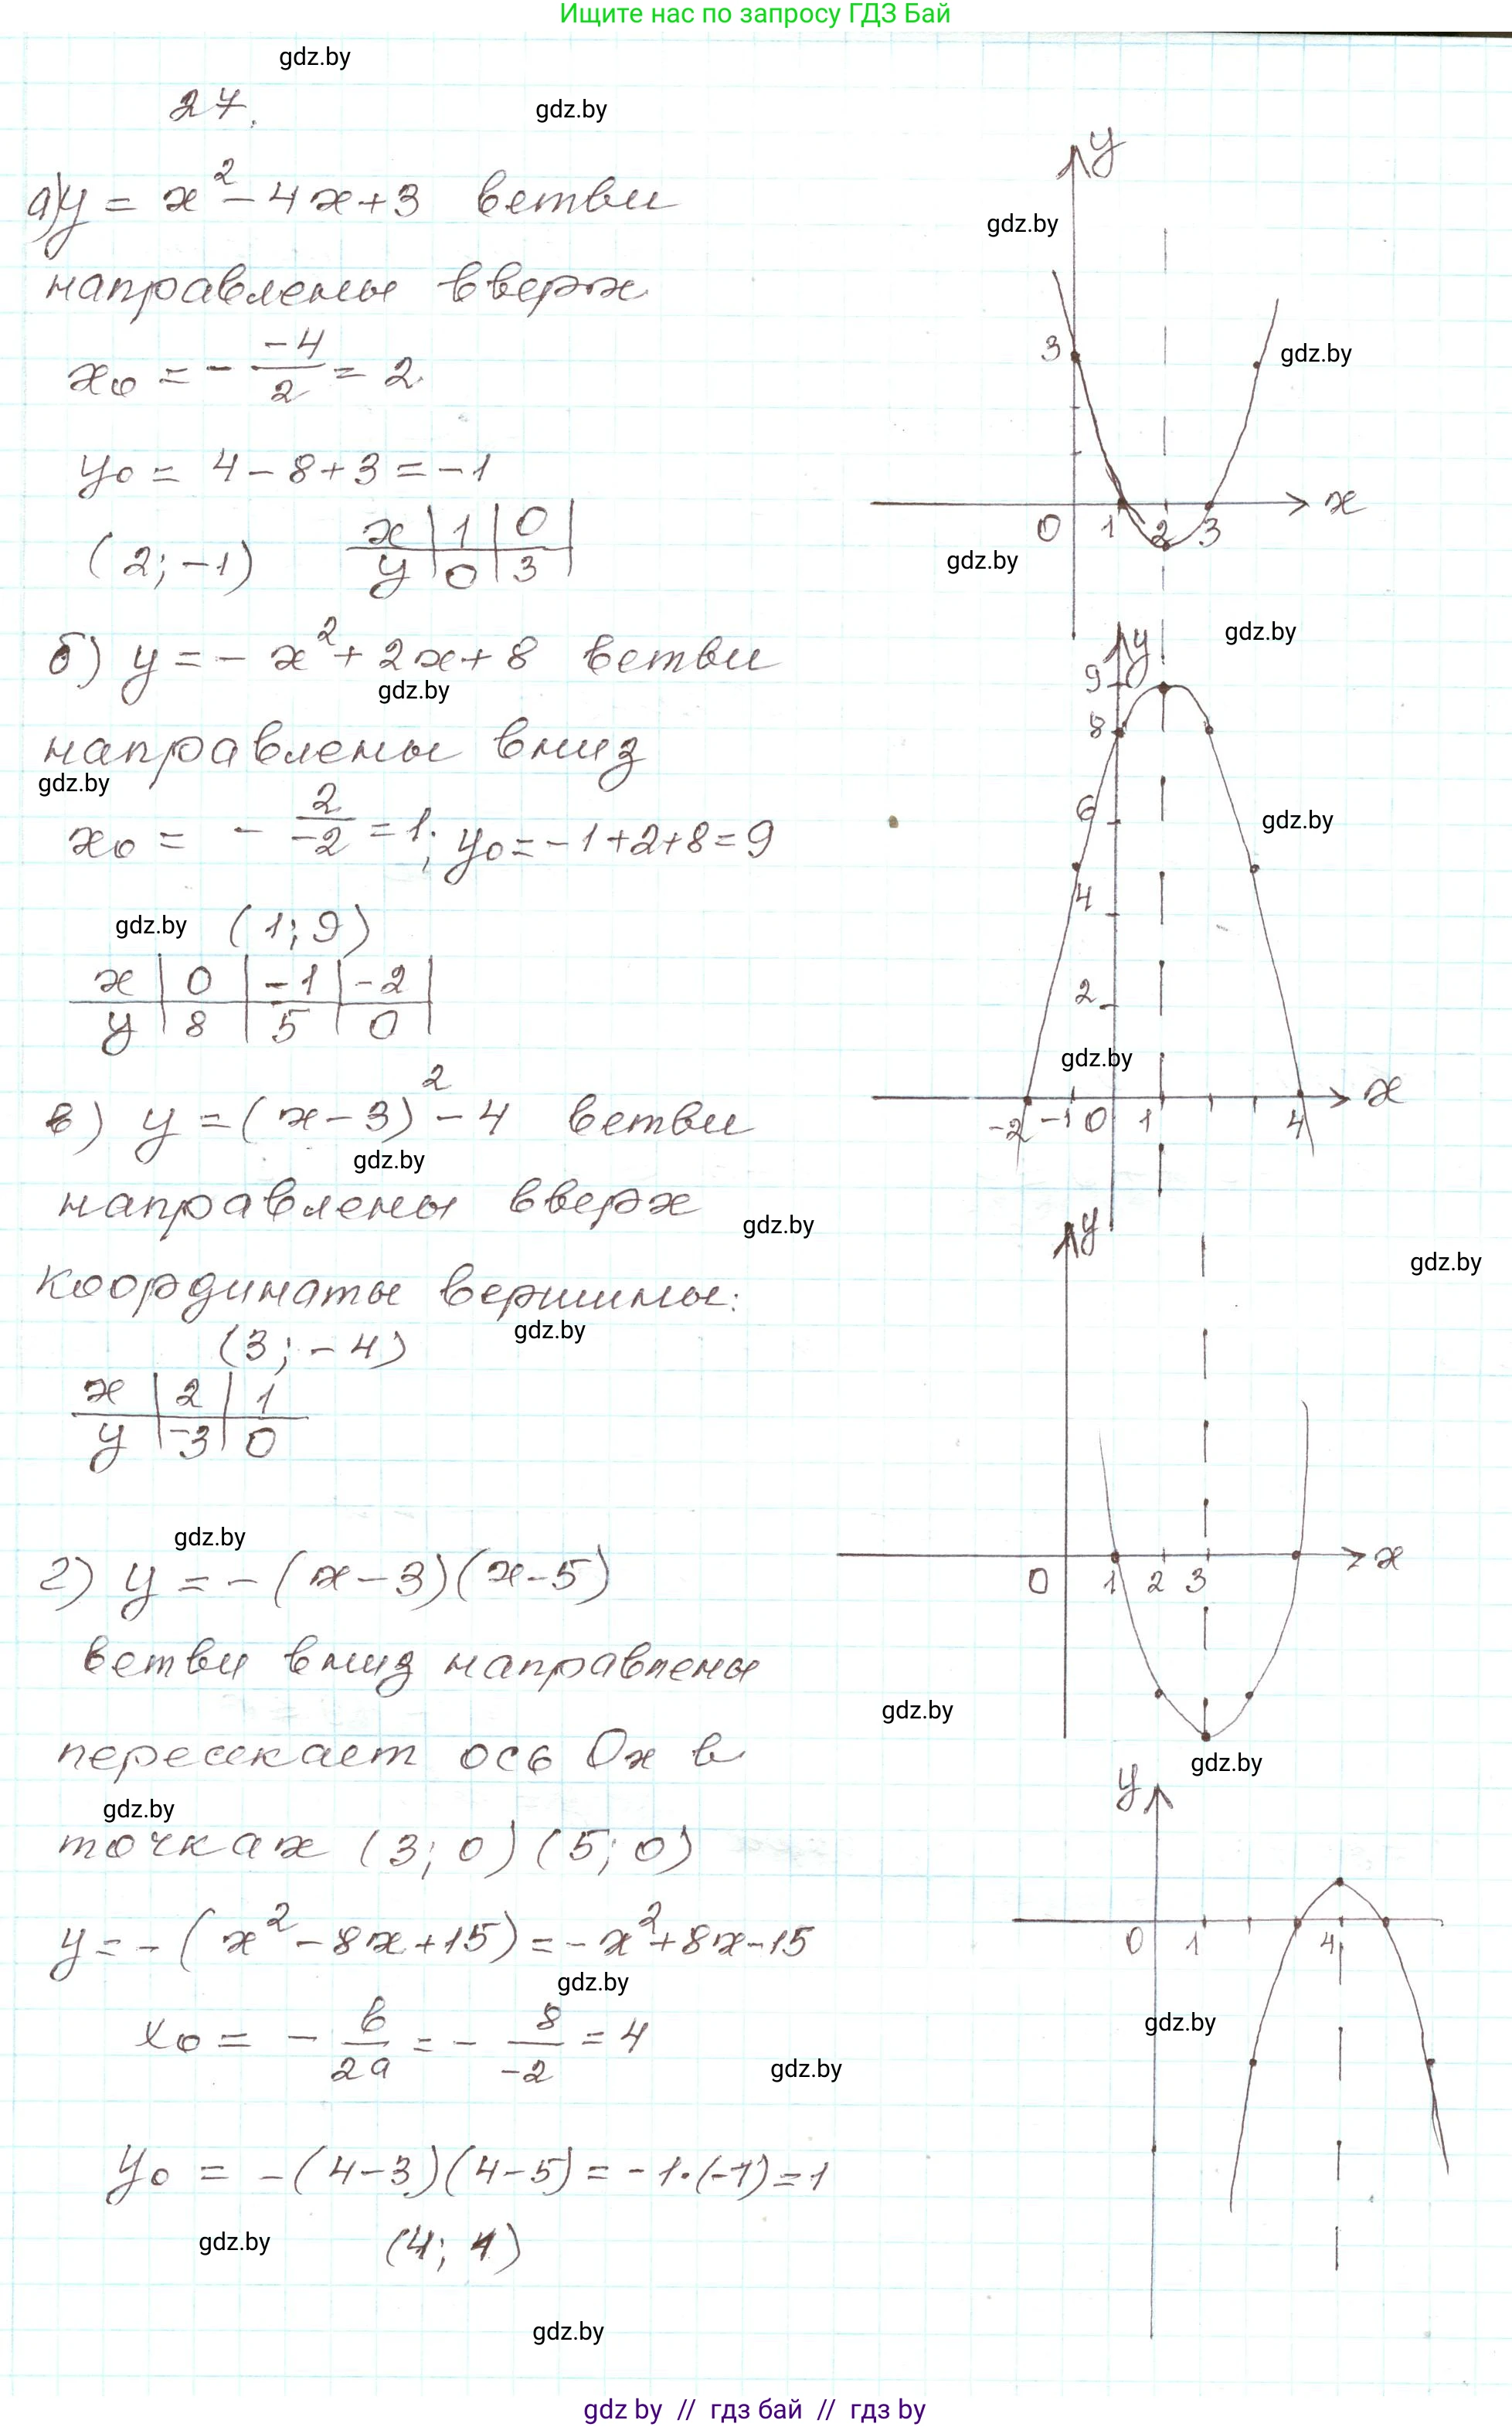 Ищите нас по запросу ГДЗ Бай
gdz.by
27.
gdz.by
а) y = x² - 4x + 3 ветви
направлены вверх
x₀ = - -4/2 = 2.
y₀ = 4 - 8 + 3 = -1
(2; -1)
x | 1 | 0 |
y | 0 | 3 |
y
gdz.by
3
gdz.by
0 1 2 3 x
gdz.by
б) y = - x² + 2x + 8 ветви
gdz.by
направлены вниз
gdz.by
x₀ = - 2/-2 = 1; y₀ = -1+2+8 = 9
gdz.by (1; 9)
x | 0 | -1 | -2 |
y | 8 | 5 | 0 |
y
gdz.by
9
8
6
gdz.by
4
2
gdz.by
-2 -1 0 1 4 x
в) y = (x - 3)² - 4 ветви
gdz.by
направлены вверх
gdz.by
координаты вершины:
gdz.by
(3; -4)
x | 2 | 1
y | -3 | 0
y
gdz.by
0 1 2 3 x
gdz.by
gdz.by
gdz.by
г) y = - (x - 3)(x - 5)
ветви вниз направлены
пересекает ось Ox в
gdz.by
точках (3; 0) (5; 0)
y = - (x² - 8x + 15) = - x² + 8x - 15
gdz.by
x₀ = - b/2a = - 8/-2 = 4
gdz.by
y₀ = - (4-3)(4-5) = -1·(-1) = 1
gdz.by (4; 1)
y
0 1 4
gdz.by
gdz.by
gdz by // гдз бай // гдз by